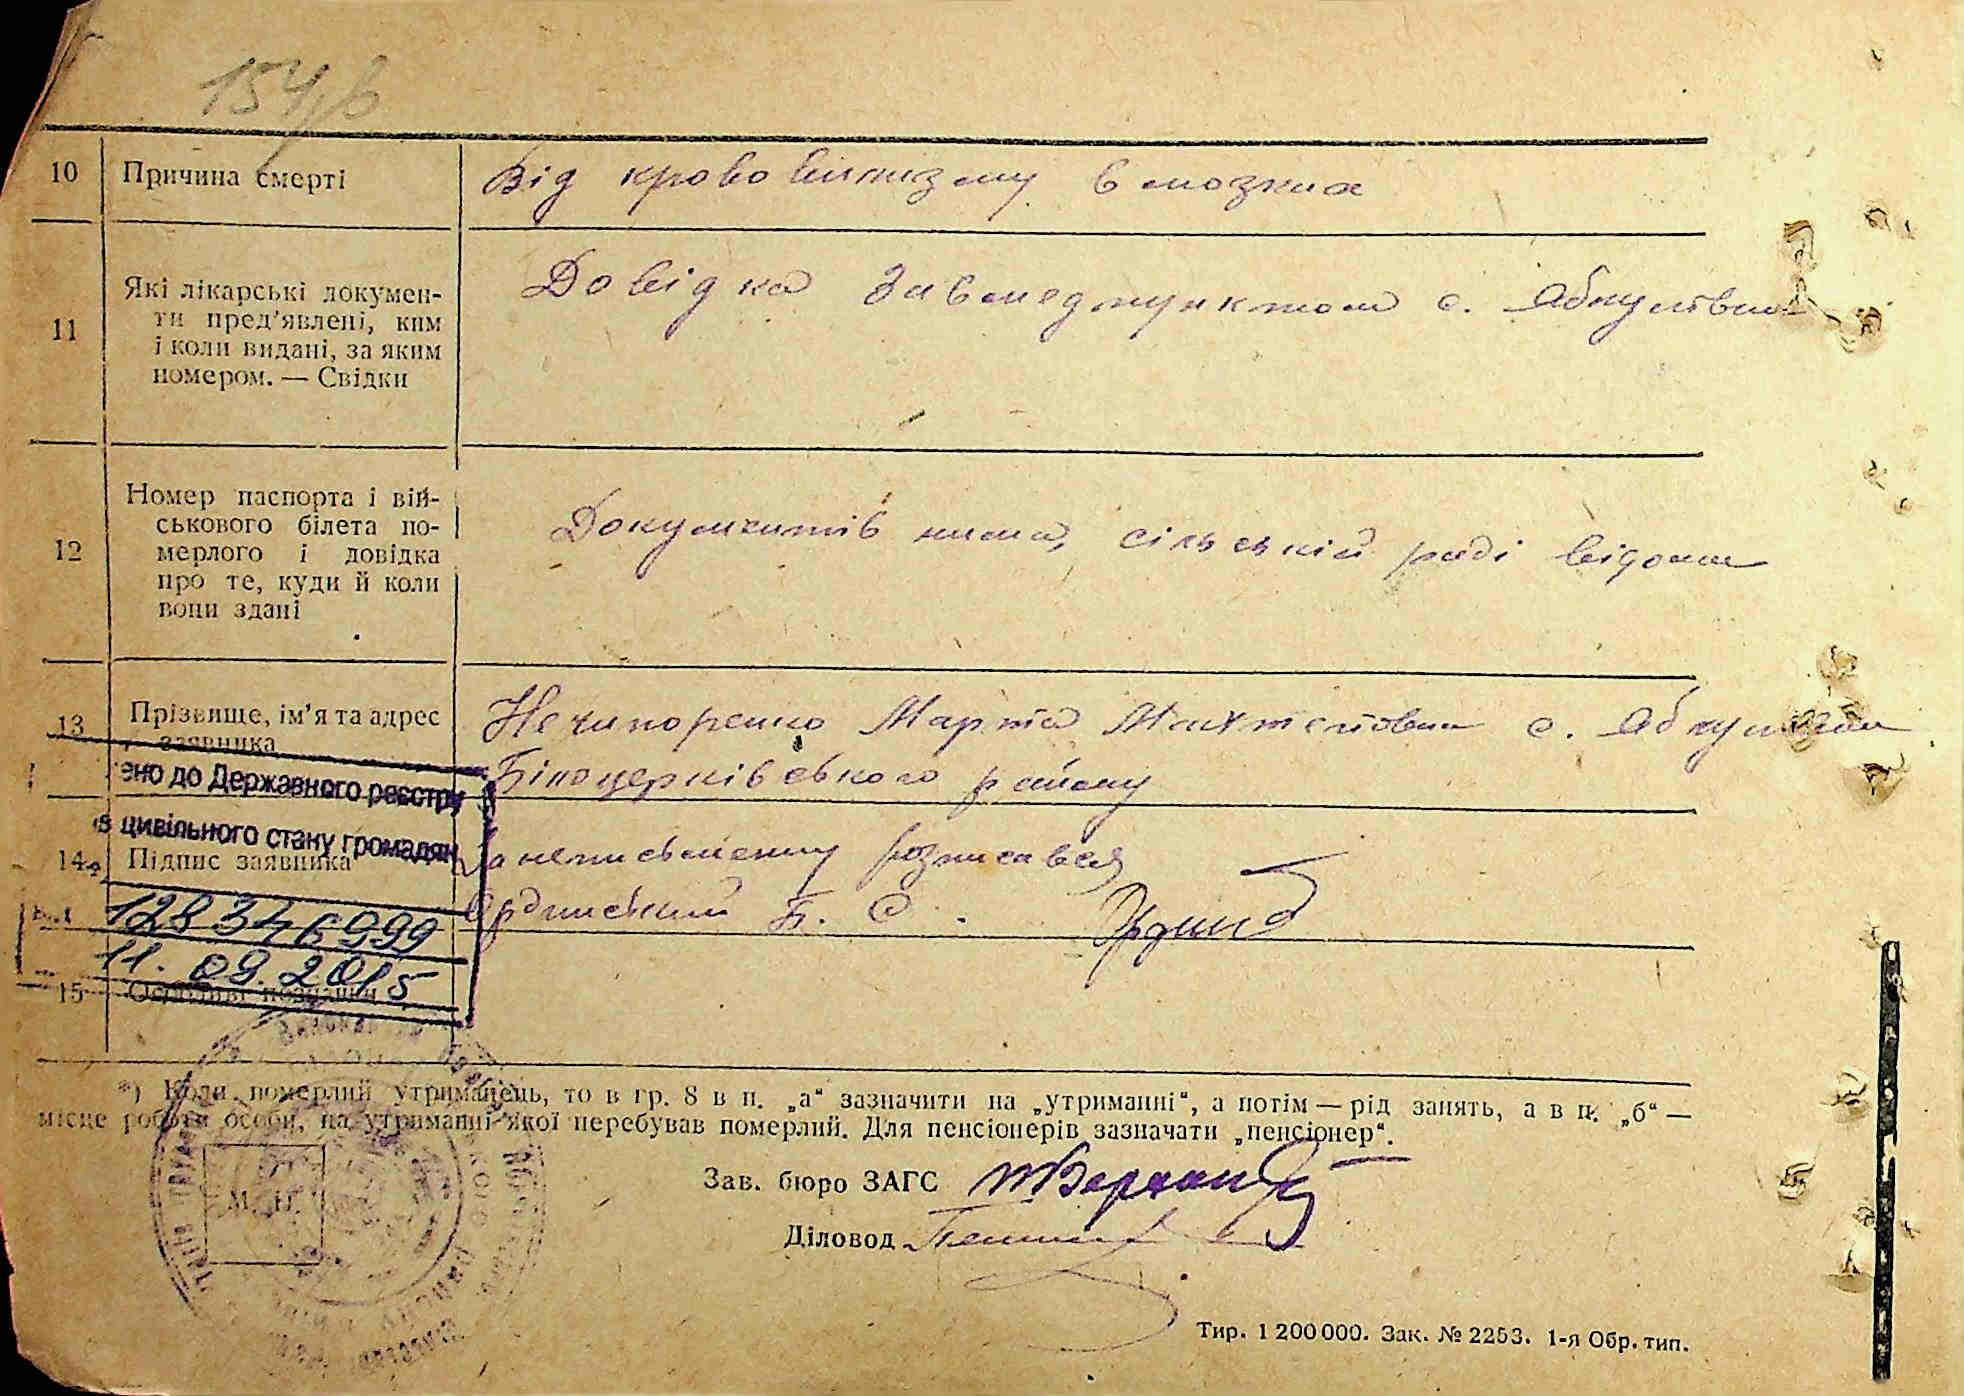 154
10 Причина смерті Від крововиливу в мозник
11 Які лікарські докумен-
ти пред’явлені, ким
і коли видані, за яким
номером. — Свідки
Довідка Завмедпунктом с. Яблунівка
12 Номер паспорта і вій-
ськового білета по-
мерлого і довідка
про те, куди й коли
вони здані
Документів нима, сільській раді відома
13 Прізвище, ім’я та адрес
заявника
Нечипоренко Марта с. Яблунівка
Білоцерківського району
ено до Державного реєстру
в цивільного стану громадян
14 Підпис заявника
За неписьменну розписався
Б. С.
128346999
11.09.2015
15
*) Коли померлий утриманець, то в гр. 8 в п. „а“ зазначити на „утриманні“, а потім — рід занять, а в п. „б“ —
місце роботи особи, на утриманні якої перебував померлий. Для пенсіонерів зазначати „пенсіонер“.
М. П.
Зав. бюро ЗАГС
Діловод
Тир. 1 200 000. Зак. № 2253. 1-я Обр. тип.